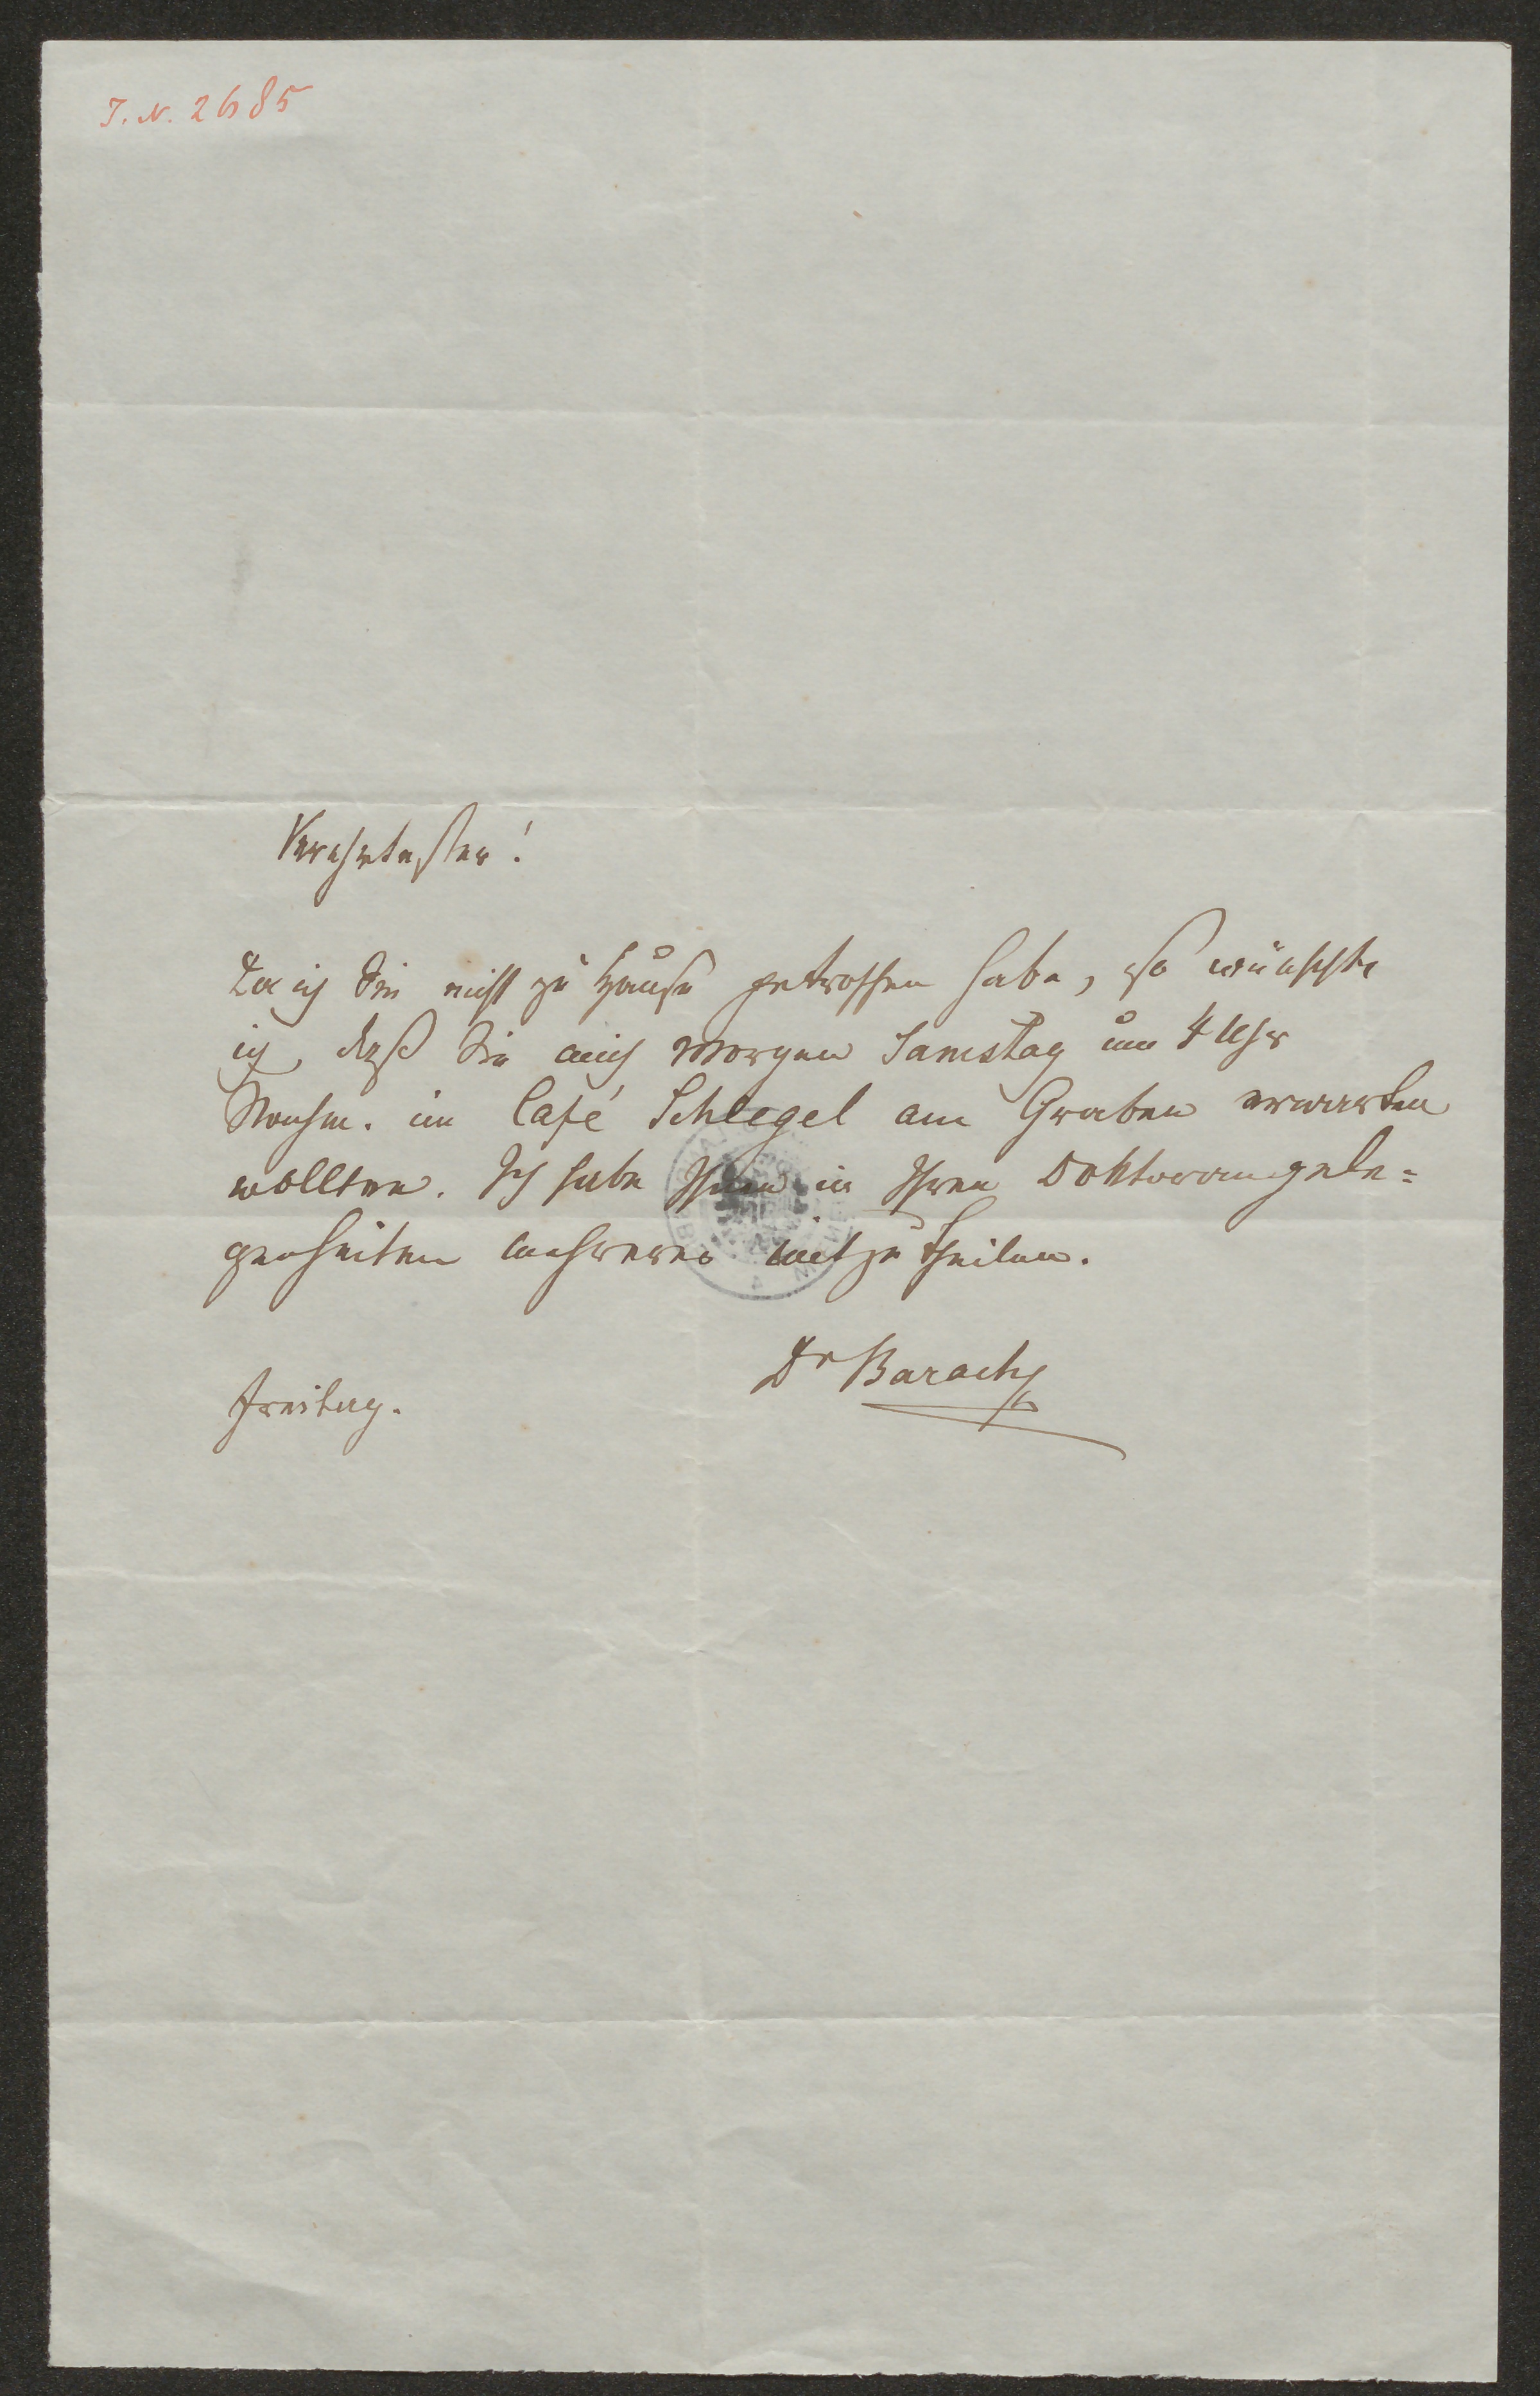 J. N. 2685
Verehrtester!
Da ich Sie nicht zu Hause getroffen habe, so wünschte
ich, daß Sie mich morgen Samstag um 4 Uhr
Nachm. im Café Schlegel am Graben erwarten
wollten. Ich habe Ihnen in Ihren Doktorangele=
genheiten mehreres mitzutheilen.
Dr Barach
Freitag.